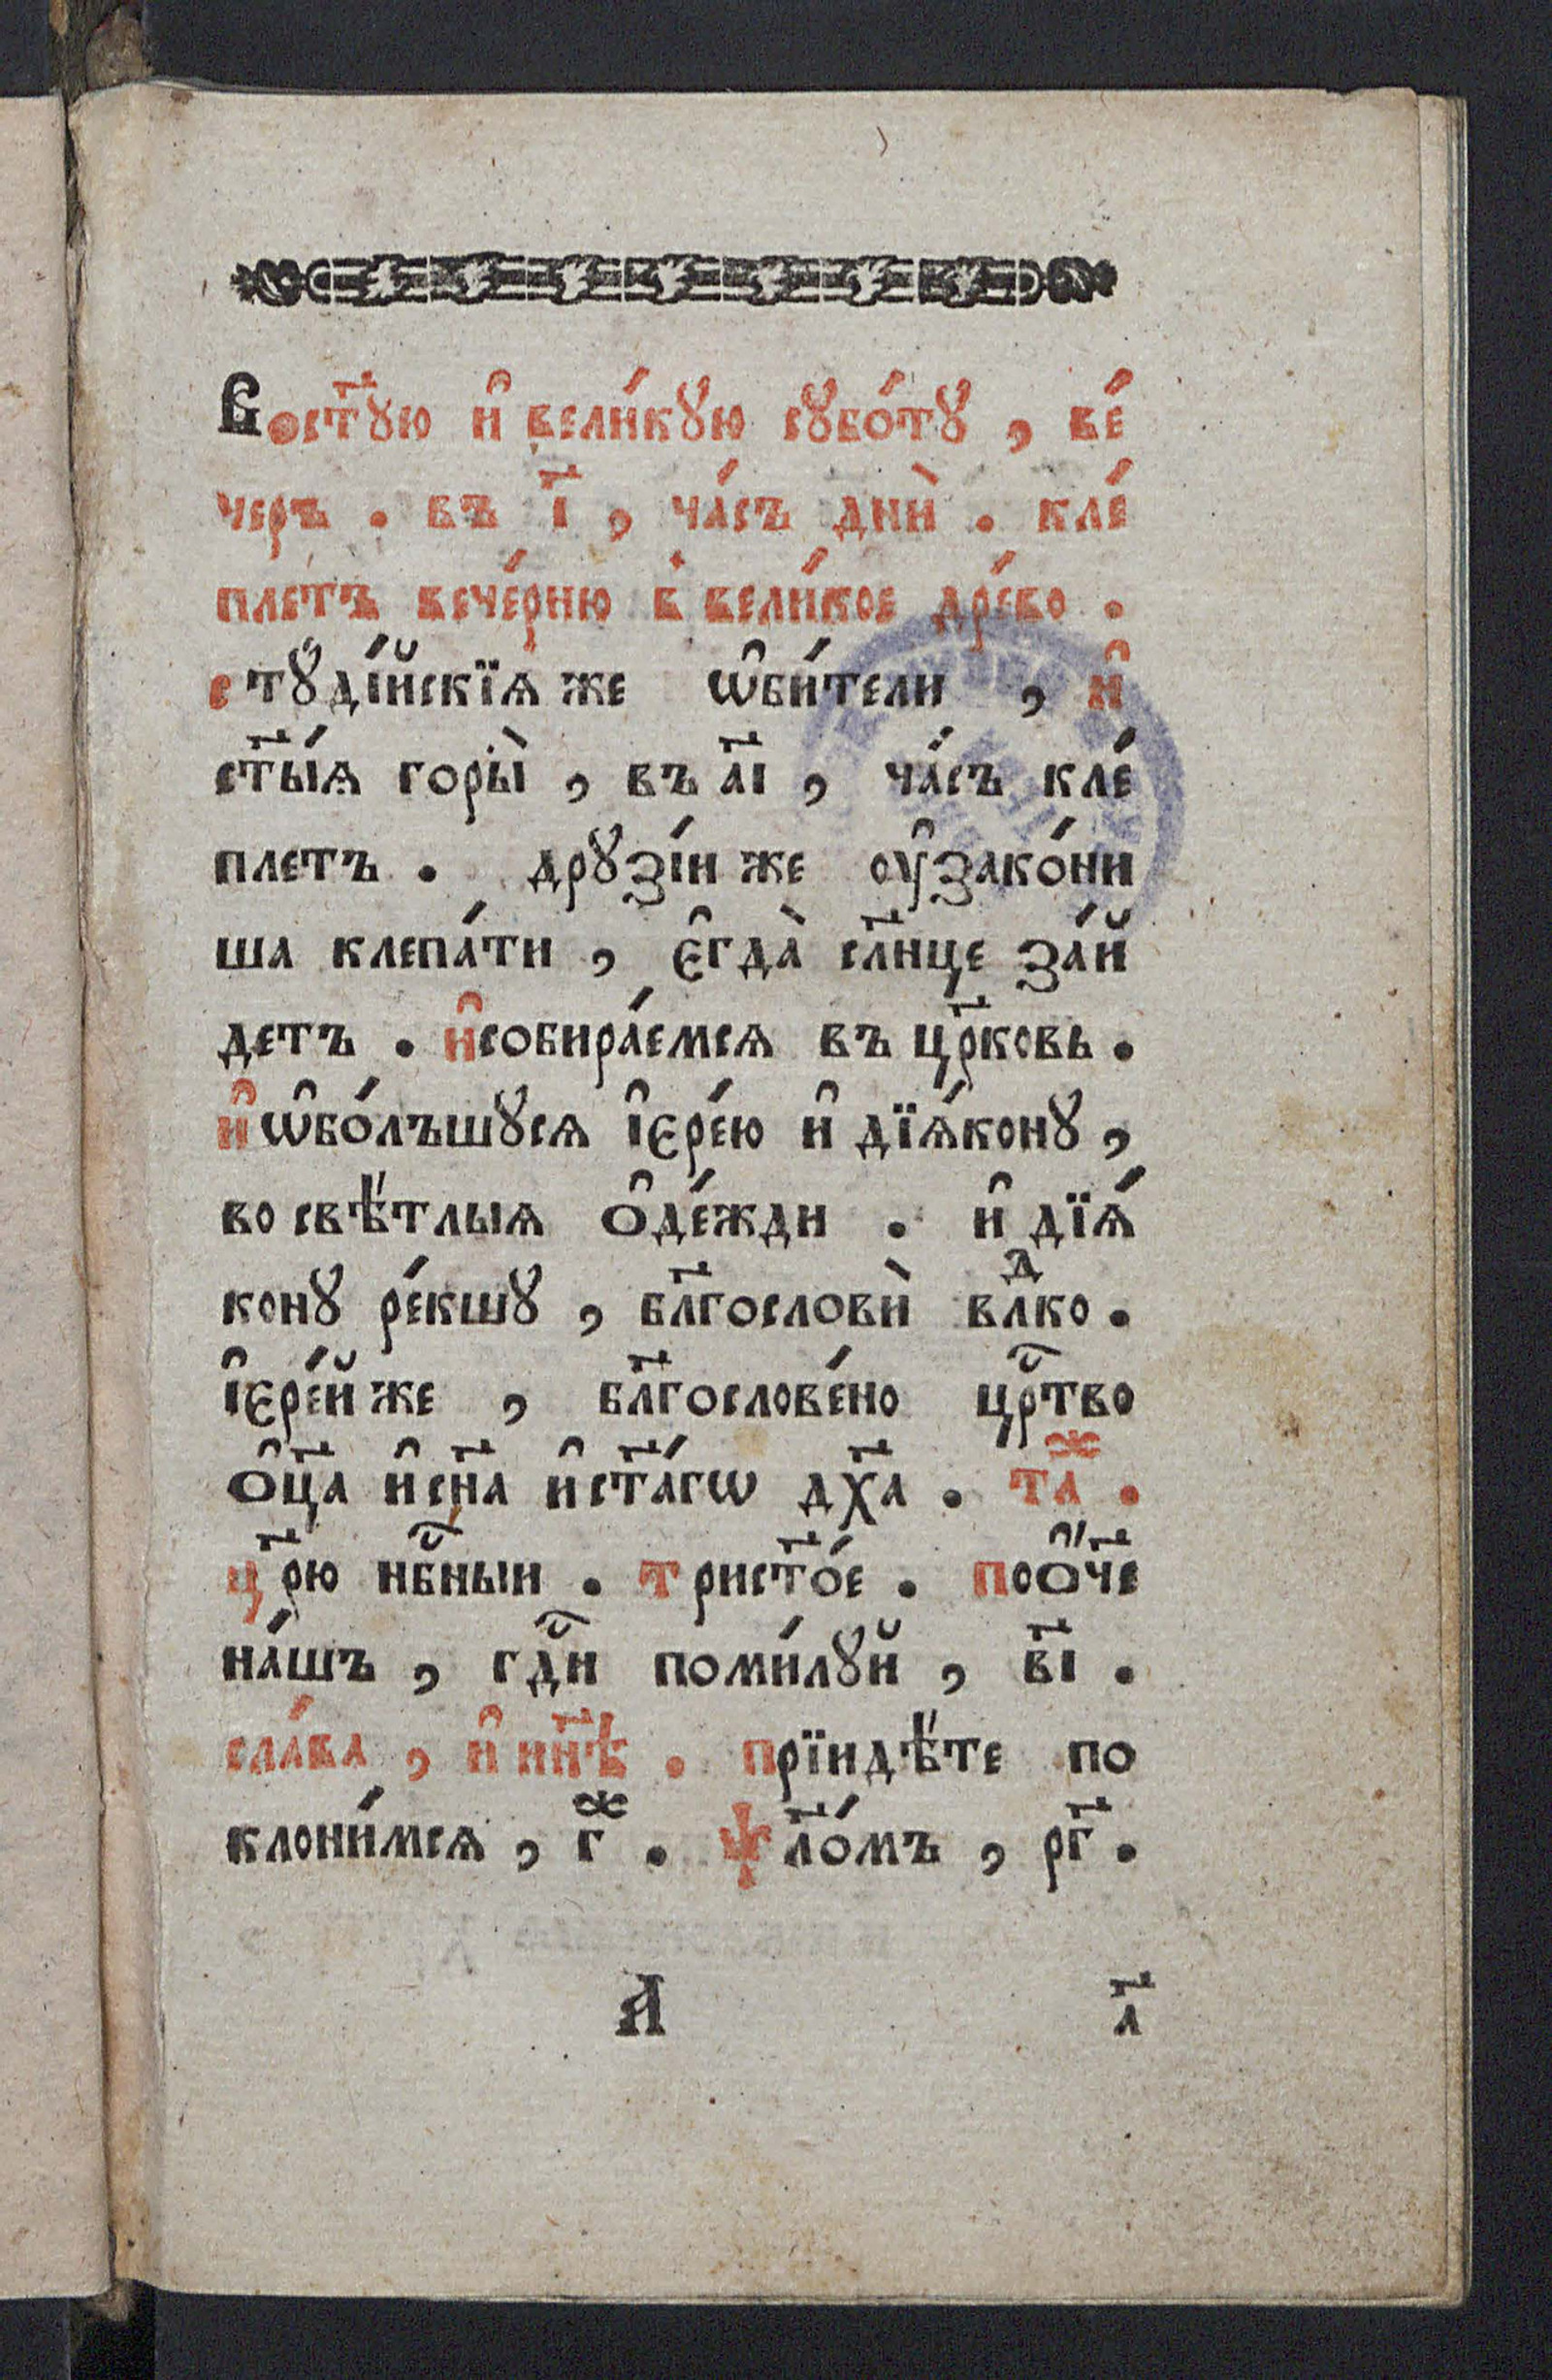 Вост҃ꙋю и҆ вели́кꙋю сꙋбо́тꙋ , ве́
черъ . въ і҃ , ча́съ днѝ . кле́
плетъ вече́рню в̾ вели́кое дре́во .
стꙋді́йскїѧ же ѡ҆би́тели , и҆
ст҃ы́ѧ горы̀ , въ а҃і , ча́съ кле́
плетъ . дрꙋзі́и же ᲂу҆зако́ни
ша клепа́ти , є҆гда̀ сл҃нце за́й
детъ . и҆собира́емсѧ въ цр҃ковь .
и҆ѡ҆бо́лъшꙋсѧ і҆єре́ю и҆ дїѧ́конꙋ ,
во свѣ́тлыѧ ѻ҆де́жди . и҆ дїѧ́
конꙋ ре́кшꙋ , бл҃гословѝ влⷣко .
і҆єре́й же , бл҃гослове́но црⷭ҇тво
ѻ҆ц҃а и҆ сн҃а и҆ ст҃а́гѡ дх҃а . таⷤ .
цр҃ю нбⷭ҇ныи . трист҃о́е . поѻ҆́ч҃е
на́шъ , гдⷭ҇и поми́лꙋй , в҃і .
сла́ва , и҆ нн҃ѣ . прїидѣ́те по
клони́мсѧ , гⷤ . ѱл҃о́мъ , рг҃ .
А л҃